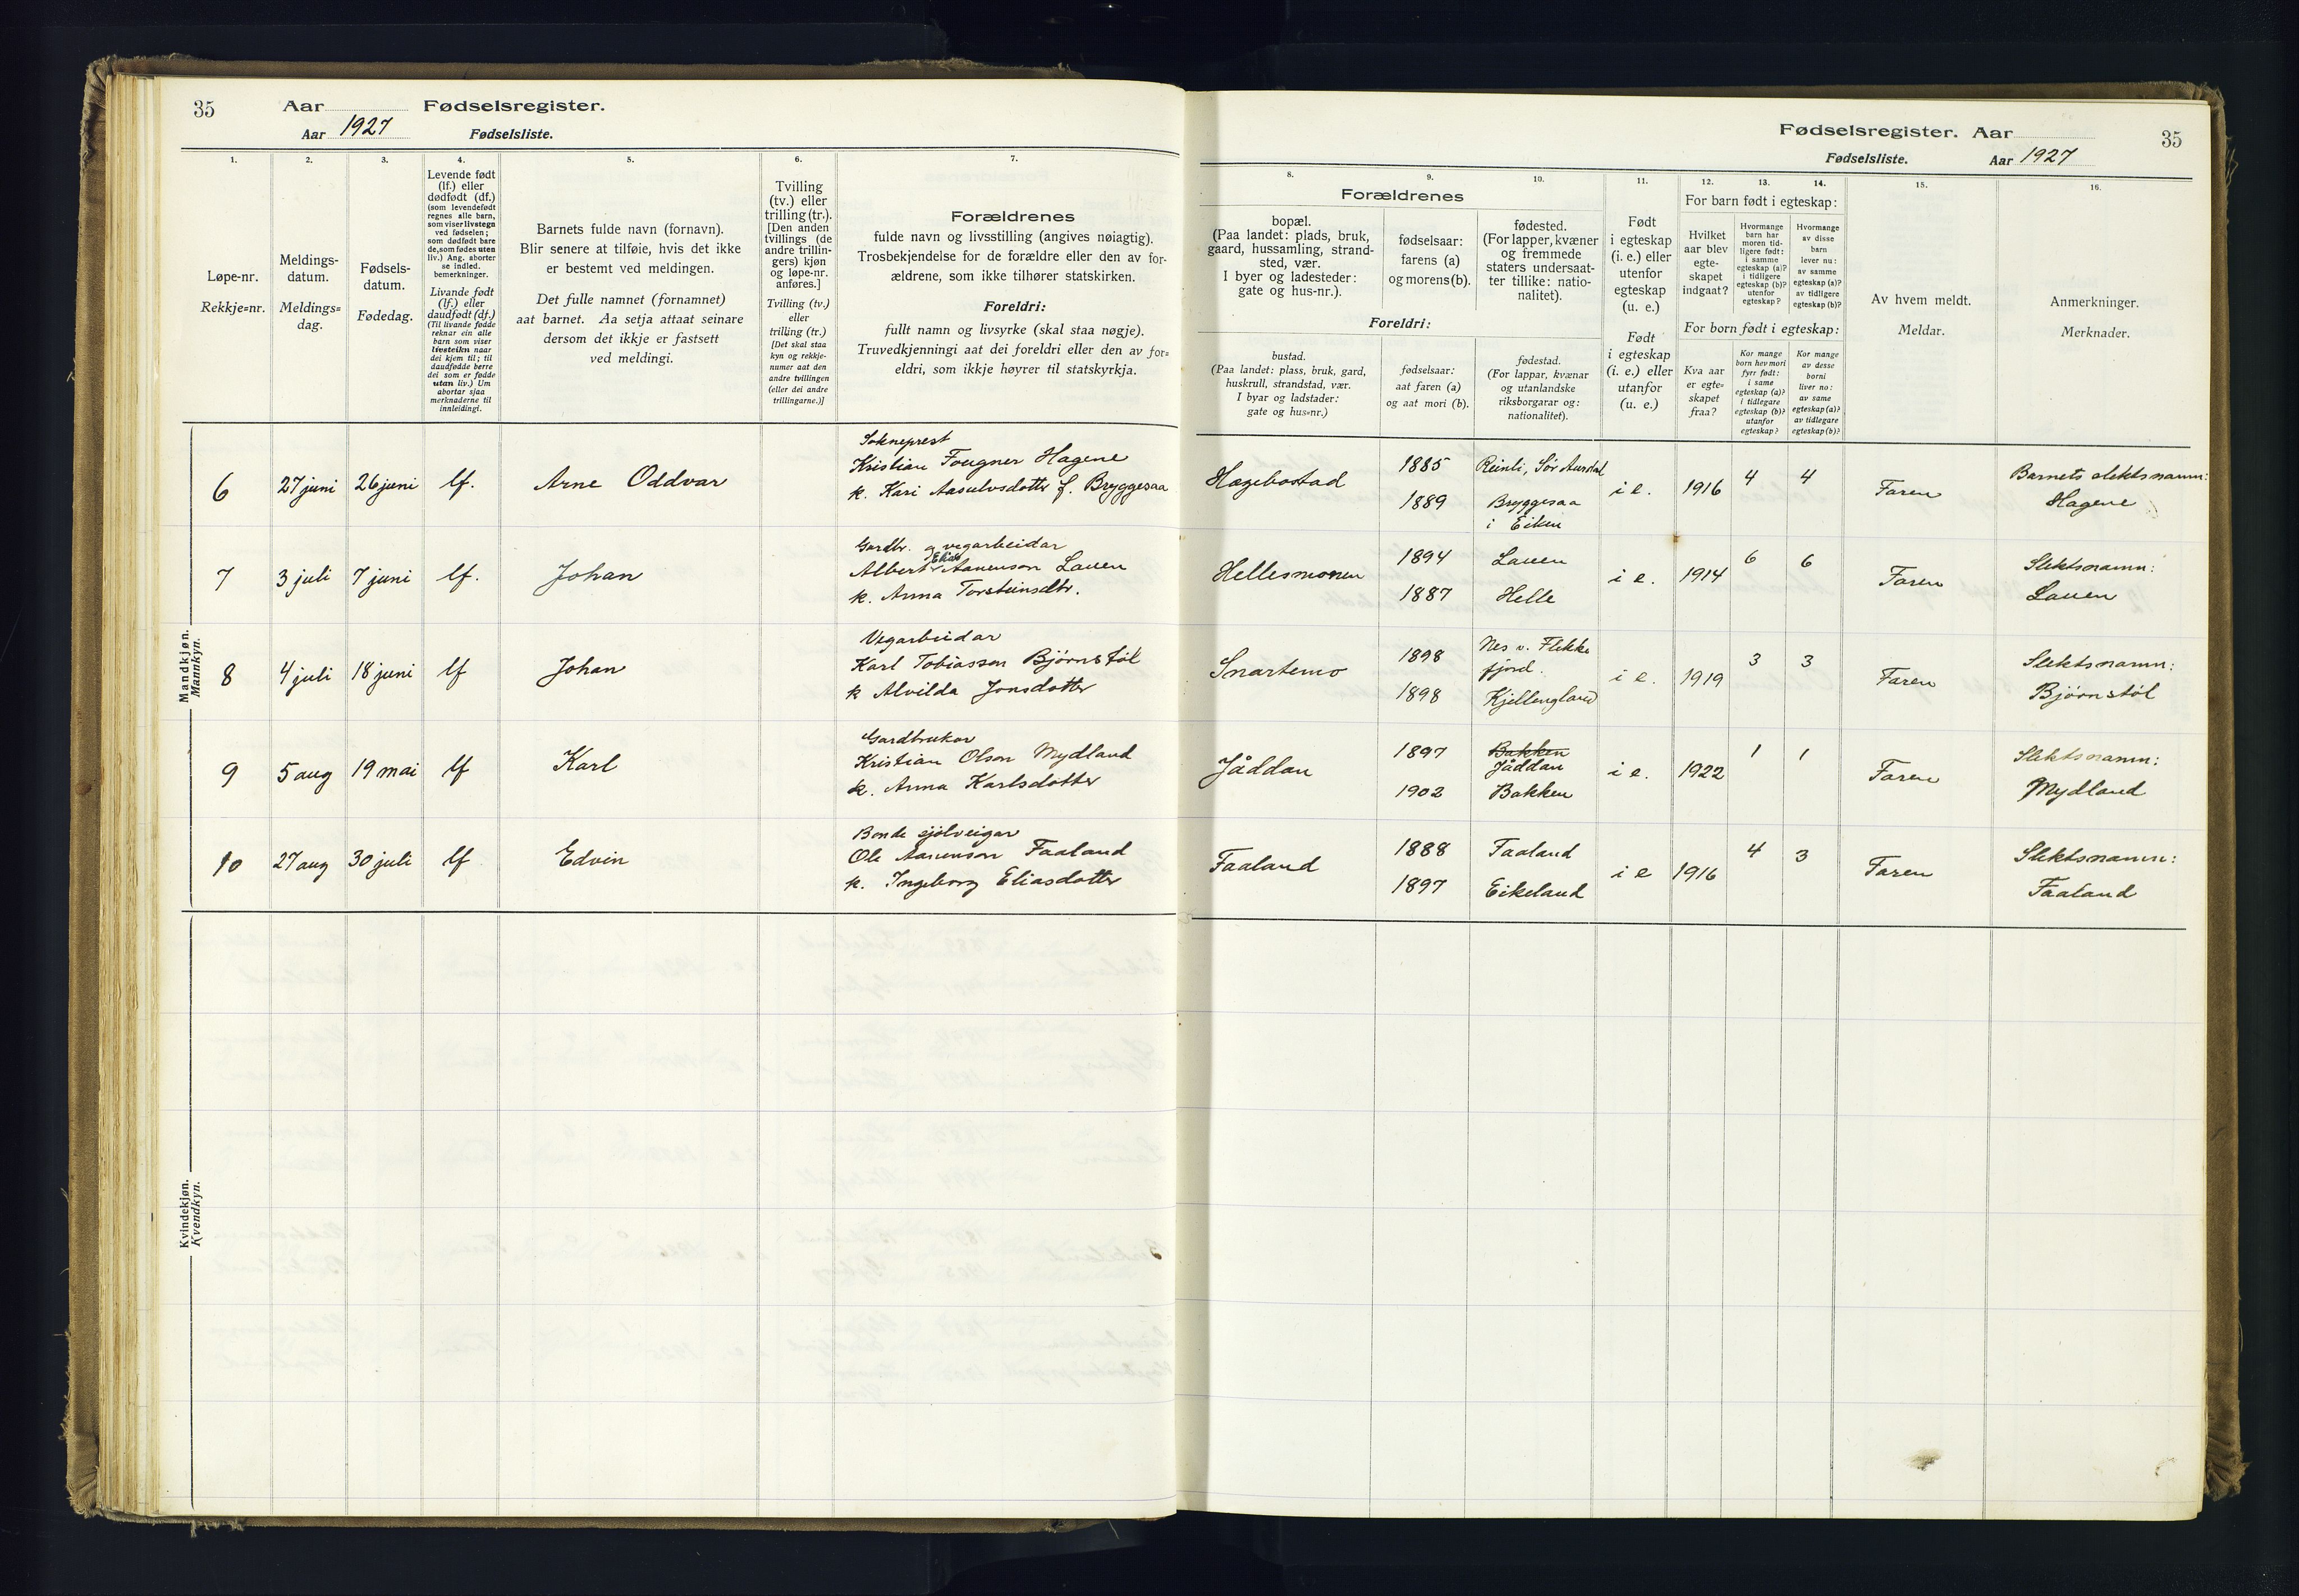 35 Aar Fødselsregister.
Aar 1927 Fødselsliste.
1. 2. 3. 4. 5. 6. 7.
Løpe-nr.
Rekkje=nr.
Meldings-
datum.
Meldings=
dag.
Fødsels-
datum.
Fødedag.
Levende født
(lf.) eller
dødfødt (df.)
(som levendefødt
regnes alle barn,
som viser livstegn
ved fødselen;
som dødfødt bare
de, som fødes uten
liv.) Ang. aborter
se indled.
bemerkninger.
Livande født
(lf.) eller
daudfødt (df.)
(Til livande fødde
reknar ein alle
barn som viser
livsteikn naar
dei kjem til; til
daudfødde berre
dei som er fødde
utan liv.) Um
abortar sjaa
merknaderne til
innleidingi.
Barnets fulde navn (fornavn).
Blir senere at tilføie, hvis det ikke
er bestemt ved meldingen.
Det fulle namnet (fornamnet)
aat barnet. Aa setja attaat seinare
dersom det ikkje er fastsett
ved meldingi.
Tvilling
(tv.) eller
trilling (tr.).
[Den anden
tvillings (de
andre trillin-
gers) kjøn
og løpe-nr.
anføres.]
Tvilling (tv.)
eller
trilling (tr.)
[Det skal staa
kyn og rekkje-
numer aat den
andre tvillingen
(eller dei andre
trillingarne.)]
Forældrenes
fulde navn og livsstilling (angives nøiagtig).
Trosbekjendelse for de forældre eller den av for-
ældrene, som ikke tilhører statskirken.
Foreldri:
fullt namn og livsyrke (skal staa nøgje).
Truvedkjenningi aat dei foreldri eller den av for=
eldri, som ikkje høyrer til statskyrkja.
Mandkjøn.
Mannkyn.
6 27 juni 26 juni lf. Arne Oddvar
Sokneprest
Kristian Fougner Hagene
k. Kari Aasulvsdotter f. Bryggesaa
7 3 juli 7 juni lf. Johan
Gardbr. og vegarbeidar
Elias
Albert Aanenson Lauen
k. Anna Torsteinsdtr.
8 4 juli 18 juni lf Johan
Vegarbeidar
Karl Tobiasson Bjørnstøl
k Alvilda Jonsdotter
9 5 aug 19 mai lf Karl
Gardbrukar
Kristian Olson Mydland
k. Anna Karlsdotter
10 27 aug 30 juli lf Edvin
Bonde sjølveigar
Ole Aanenson Faaland
k. Ingeborg Eliasdotter
Kvindekjøn.
Kvendkyn.
Fødselsregister. Aar 35
Fødselsliste. Aar 1927
8. 9. 10. 11. 12. 13. 14. 15. 16.
Forældrenes
bopæl.
(Paa landet: plads, bruk,
gaard, hussamling, strand-
sted, vær.
I byer og ladesteder:
gate og hus-nr.).
fødselsaar:
farens (a)
og morens (b).
fødested.
(For lapper, kvæner
og fremmede
staters undersaat-
ter tillike: natio-
nalitet).
Foreldri:
bustad.
(Paa landet: plass, bruk, gard,
huskrull, strandstad, vær.
I byar og ladstader:
gate og hus=nr.)
fødselsaar:
aat faren (a)
og aat mori (b).
fødestad.
(For lappar, kvænar
og utanlandske
riksborgarar og:
nationalitet).
Født
i egteskap
(i. e.) eller
utenfor
egteskap
(u. e.)
Født
i egteskap
(i. e.) eller
utanfor
(u. e.)
For barn født i egteskap:
Hvilket
aar blev
egte-
skapet
indgaat?
Hvormange
barn har
moren tid-
ligere født:
i samme
egteskap (a)?
i tidligere
egteskap (b)?
utenfor
egteskap?
Hvormange
av disse
barn
lever nu:
av samme
egteskap (a)?
av tidligere
egteskap (b)?
For born født i egteskap:
Kva aar
er egte=
skapet
fraa?
Kor mange
born hev mori
fyrr født:
i same
egteskap (a)?
i tidlegare
egteskap (b)?
utanfor
egteskap?
Kor mange
av desse
borni
liver no:
av same
egteskap (a)?
av tidlegare
egteskap (b)?
Av hvem meldt.
Meldar.
Anmerkninger.
Merknader.
Hægebostad
1885 Reinli, Sør Aurdal
1889 Bryggesaa
i Eiken
i e. 1916 4 4 Faren
Barnets slektsnamn:
Hagene
Hellesmonen
1894 Lauen
1887 Helle
i e. 1914 6 6 Faren
Slektsnamn:
Lauen
Snartemo
1898 Nes v. Flekke
fjord.
1898 Kjellengland
i e. 1919 3 3 Faren
Slektsnamn:
Bjørnstøl
Jåddan
1897 Bakken
Jåddan
1902 Bakken
i e. 1922 1 1 Faren
Slektsnamn:
Mydland
Faaland
1888 Faaland
1897 Eikeland
i e 1916 4 3 Faren
Slektsnamn:
Faaland